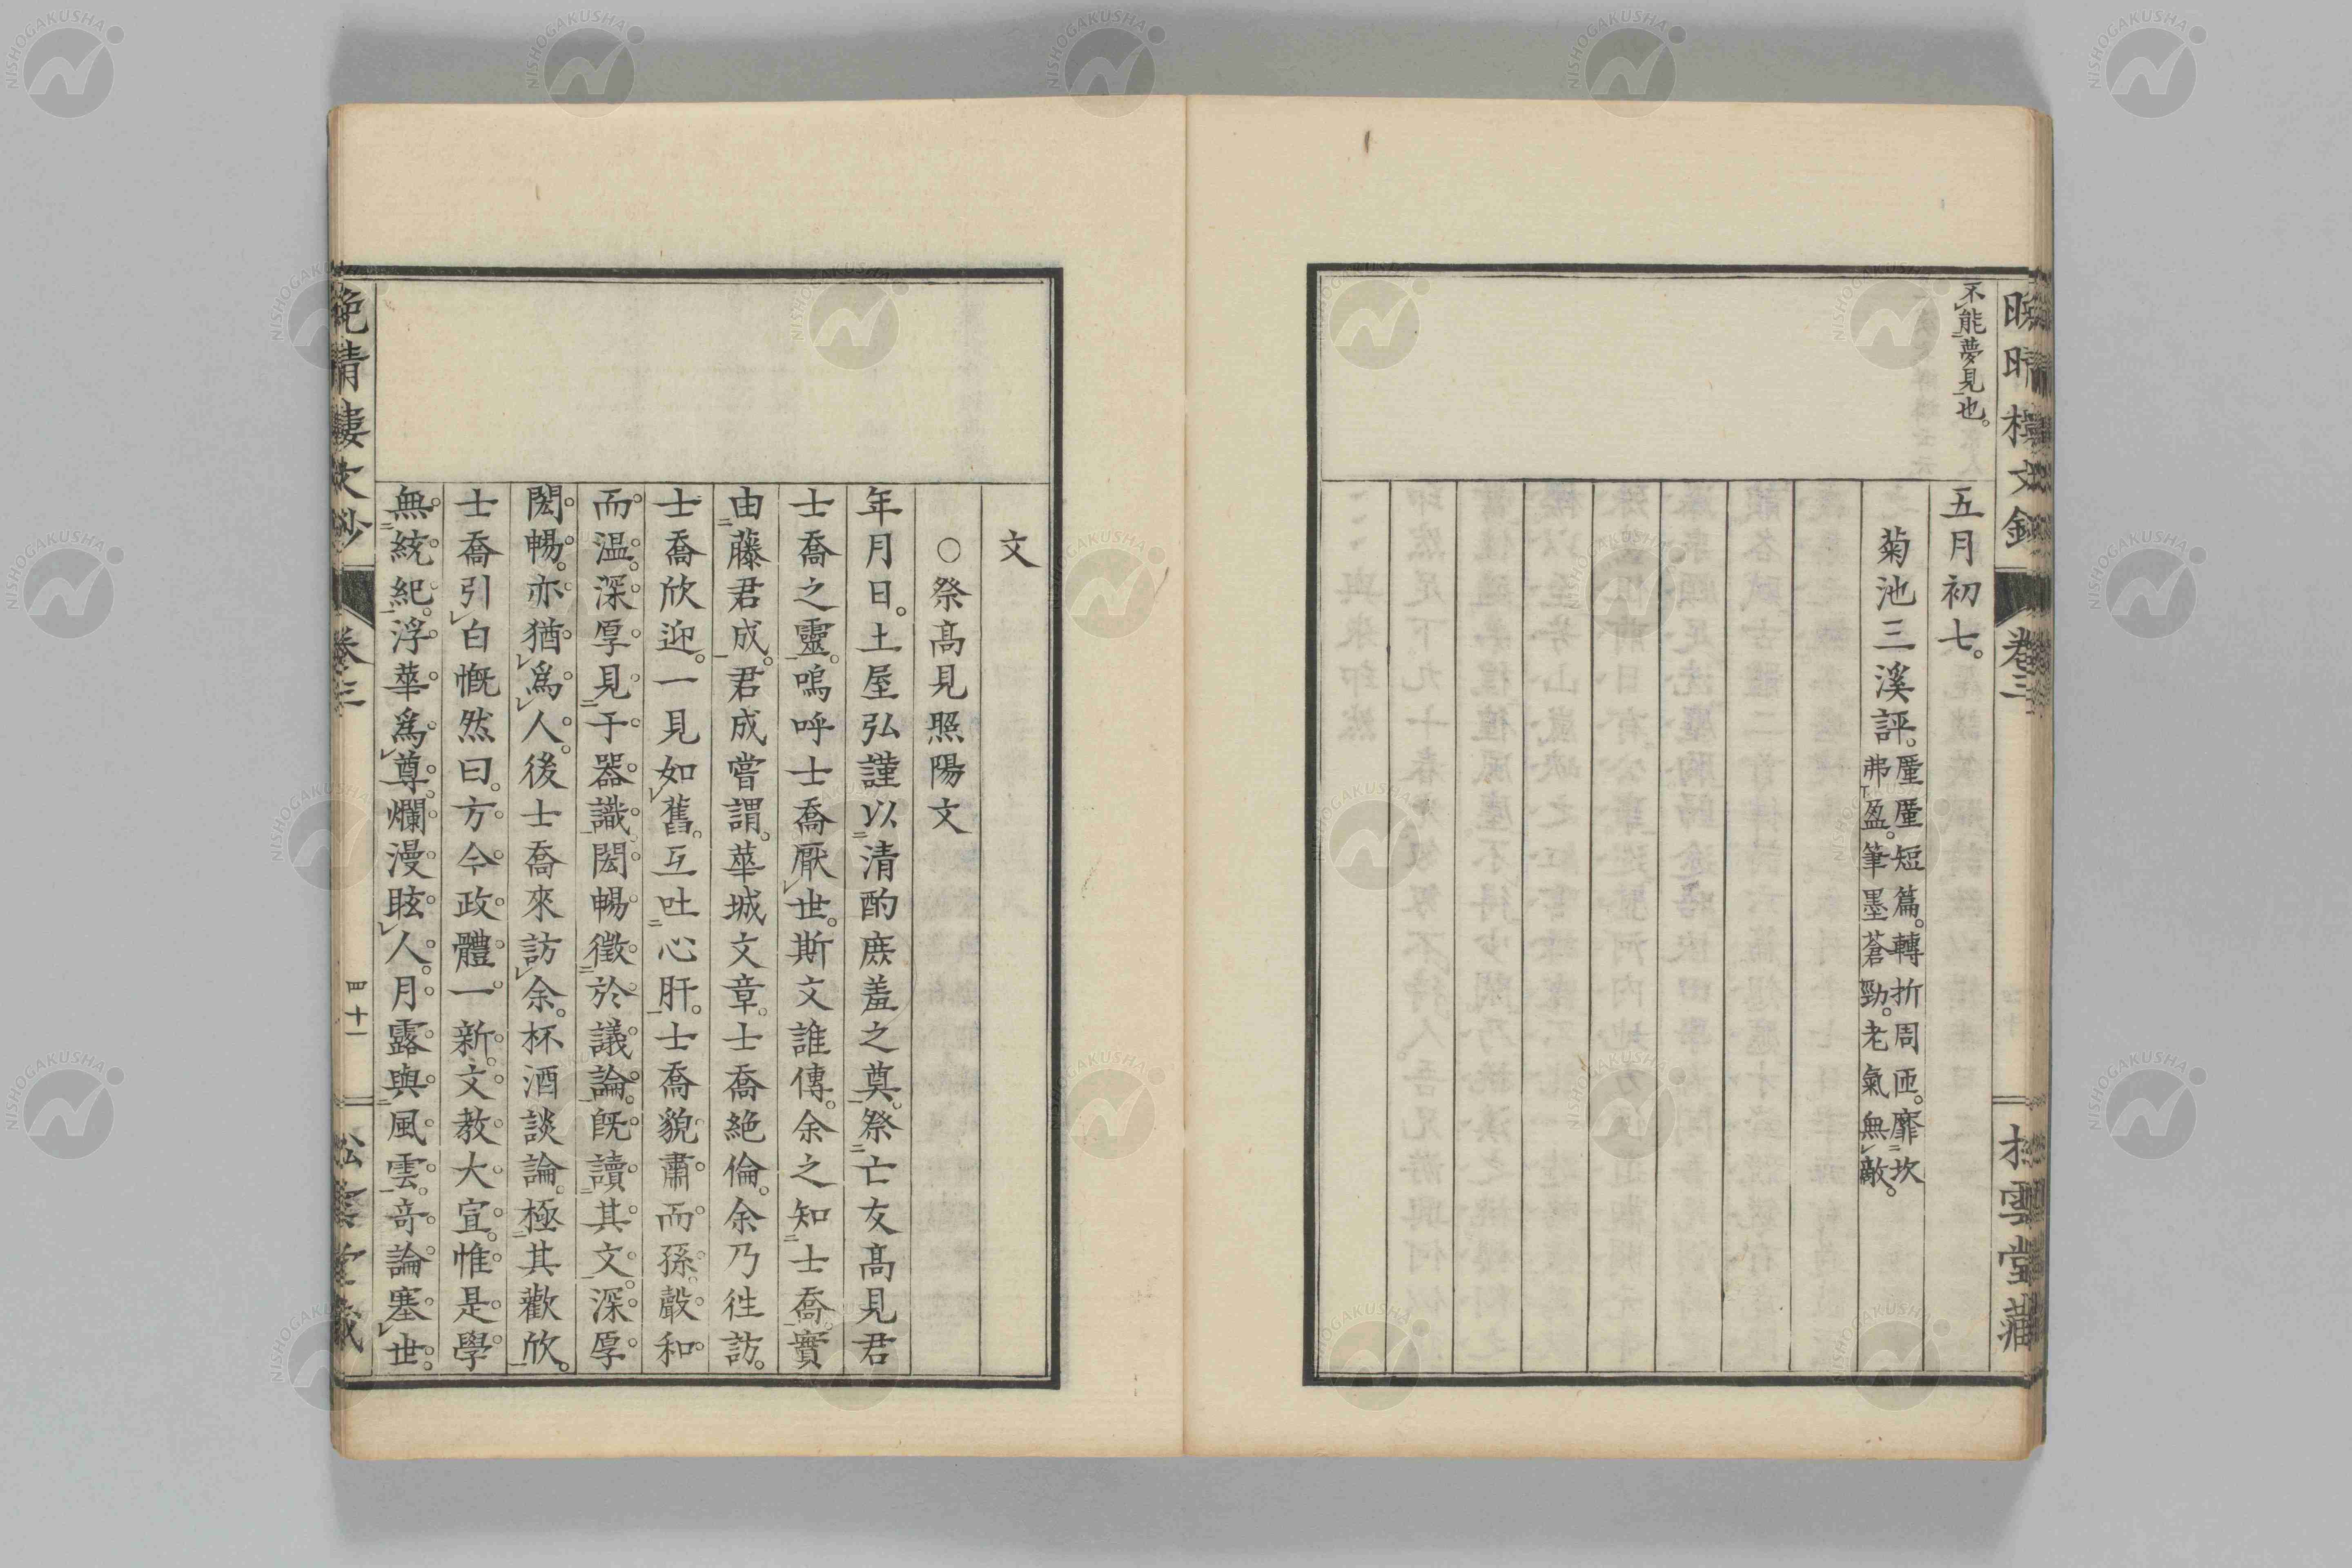 不能夢見也。
五月初七。
菊池三溪評。厪厪短篇。轉折周匝。靡坎
弗盈。筆墨蒼勁。老氣無敵。
卷三
文
○祭髙見照陽文
年月日。土屋弘謹以清酌庶羞之奠。祭亡友髙見君
士喬之靈。嗚呼士喬厭世。斯文誰傳。余之知士喬。實
由藤君成。君成嘗謂。華城文章。士喬絶倫。余乃徃訪。
士喬欣迎。一見如舊。互吐心肝。士喬貌肅而孫。聲和
而温。深厚見于器識。閎暢徵於議論。既讀其文。深厚
閎暢。亦猶爲人。後士喬來訪余。杯酒談論。極其歡欣。
士喬引白慨然曰。方今政體一新。文教大宣。惟是學
無統紀。浮華爲尊。爛漫眩人。月露與風雲。竒論塞世。
晩晴樓文鈔
卷三
四十一
松雲堂藏
NISHOGAKUSHA